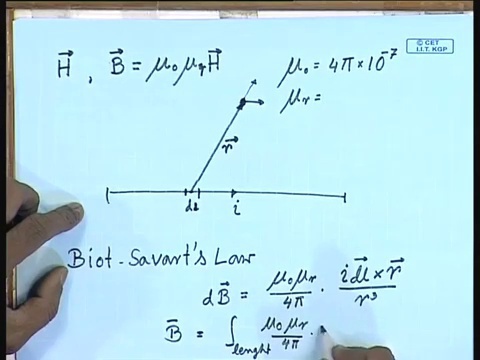 © CET
I.I.T. KGP
H⃗ , B⃗ = μ₀ μᵣ H⃗
μ₀ = 4π × 10⁻⁷
μᵣ =
r⃗
dl
i
Biot-Savart's Law
dB⃗ = μ₀μᵣ/4π · i dl⃗ × r⃗ / r³
B̄ = ∫lenght μ₀μᵣ/4π ·